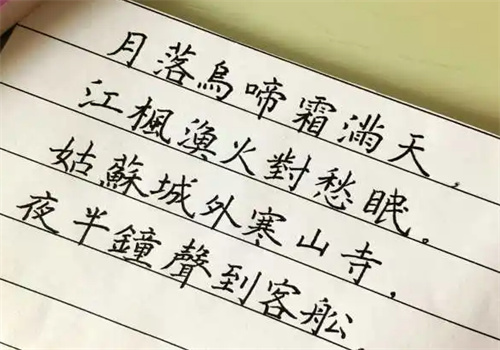 月落烏啼霜滿天，
江楓漁火對愁眠。
姑蘇城外寒山寺，
夜半鐘聲到客舩